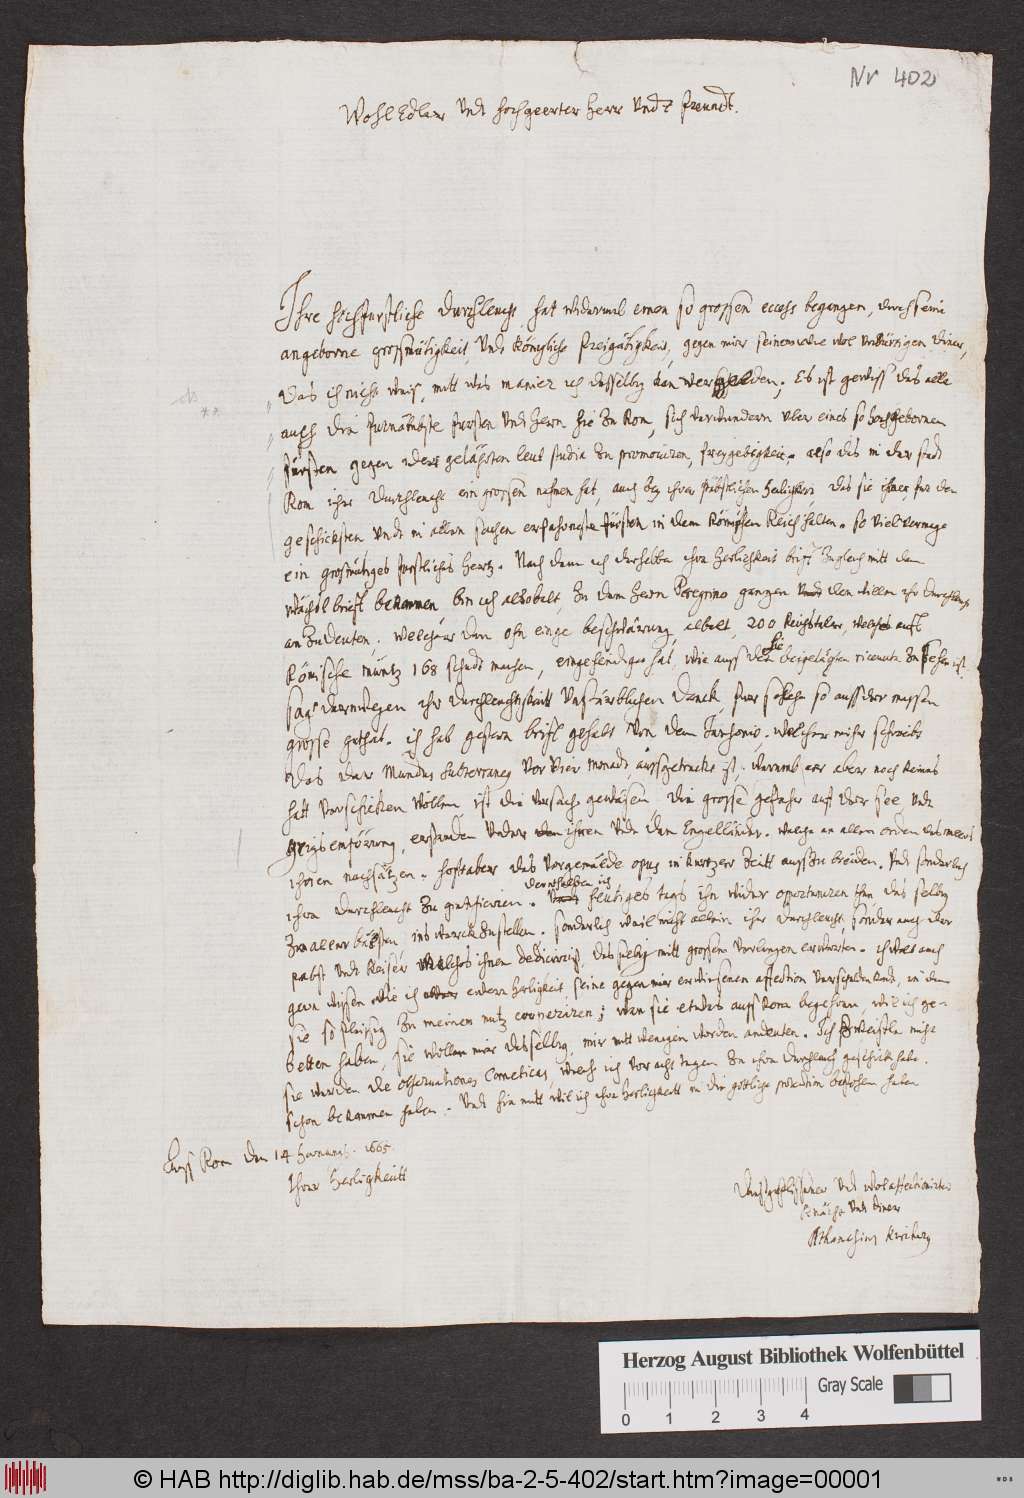 Nr 402
WohlEdler Undt hochgeerter herr Undt freundt.
Ihre hochfurstliche Durchleucht hat widerumb einen so grossen excess begangen, durch seine
angeborne grossmütigkeit Undt Königliche freigäbigkeit, gegen mir seinem wol Unwürtigen diener,
Das ich nicht weis, mitt was manier ich dasselbig kan vergelden; Es ist gewiss das alle
auch die furnämbste fursten Undt Hern hie Zu Rom, sich verwundern uber eines so hochgebornen
fürsten gegen gelährten leut studia Zu promoviren, freygebigkeit. also das in der stadt
Rom ihr Durchleucht ein grossen nahmen hat, auch bey ihrer päbstlichen Heiligkeit das sie ihnen fur den
geschicksten Undt in allen sachen erfahrnsten fürsten in dem Römischen Reich halten. so viel vermage
ein grosmütiges furstliches hertz. Nach dem ich derselben ihre herlichkeit briff Zugleich mitt dem
wächsl brieff bekommen bin ich alsobalt, Zu dem Hern Peregrino gangen den willen ihr Durchleucht
anZudeuten, welcher den ohn einge beschwärung, albelt, 200 Reichstaler, welche auff
Römische müntz 168 schudi machen, eingehendiget hat, wie auss der hie beigelägten ricevuta Zu sehen ist.
sag derwegen ihr Durchleuchtigkeitt Unsterblichen Danck, fuer solche so auss der massen
grosse guthat. ich hab gestern briff gehabt Von dem Janssonio, welcher mihr schreibt
Das der Mundus subterraneus vor Vier monadt, aussgetruckt ist, warumb er aber noch keines
hatt Verschicken wöllen, ist die Ursach gewäsen die grosse gefahr auff der see, Undt
krigs empörung, enstanden Under ihnen Undt den Engelländer, welche an allen orden des meers
ihnen nachsätzen. hoff aber das Vorgemälde opus in kurtzer Zeitt auss Zu breiden. Undt sonderlich
ihrer Durchleucht Zu gratificiren. derenthalben ich heutiges tags ihn wider opportuniren thu, das selbig
Zum aller bälsten, ins werck Zustellen. sonderlich weil nicht allein ihr Durchleucht, sonder auch der
pabst Undt Keiser welches ihnen dedicirt ist, das selbig mitt grossem verlangen erwarten. ich wolt auch
gern wissen wie ich endern herligkeit seine gegen mir erwiesenen affection verschulden kont, in dem
sie so fleissig Zu meinem nutz cooperiren; wan sie etwas auss Rom begehren, wil ich ge-
betten haben, sie wollen mir dasselbig, mir mitt wenigen worden andeuten. Ich Zweifle nicht
sie werden die observationes Cometicas, welche ich vor acht tagen Zu ihrer Durchleucht geschickt habe
schon bekommen haben. Undt hie mitt wil ich ihre herligkeitt in die götliche protection befohlen haben
Auss Rom den 14 Hornungs. 1665.
Ihrer herligkeitt
Dinstgeflissener Undt wolaffectionirter
Undt diener
Athanasius Kircherus
Herzog August Bibliothek Wolfenbüttel
Gray Scale
0 1 2 3 4
© HAB http://diglib.hab.de/mss/ba-2-5-402/start.htm?image=00001